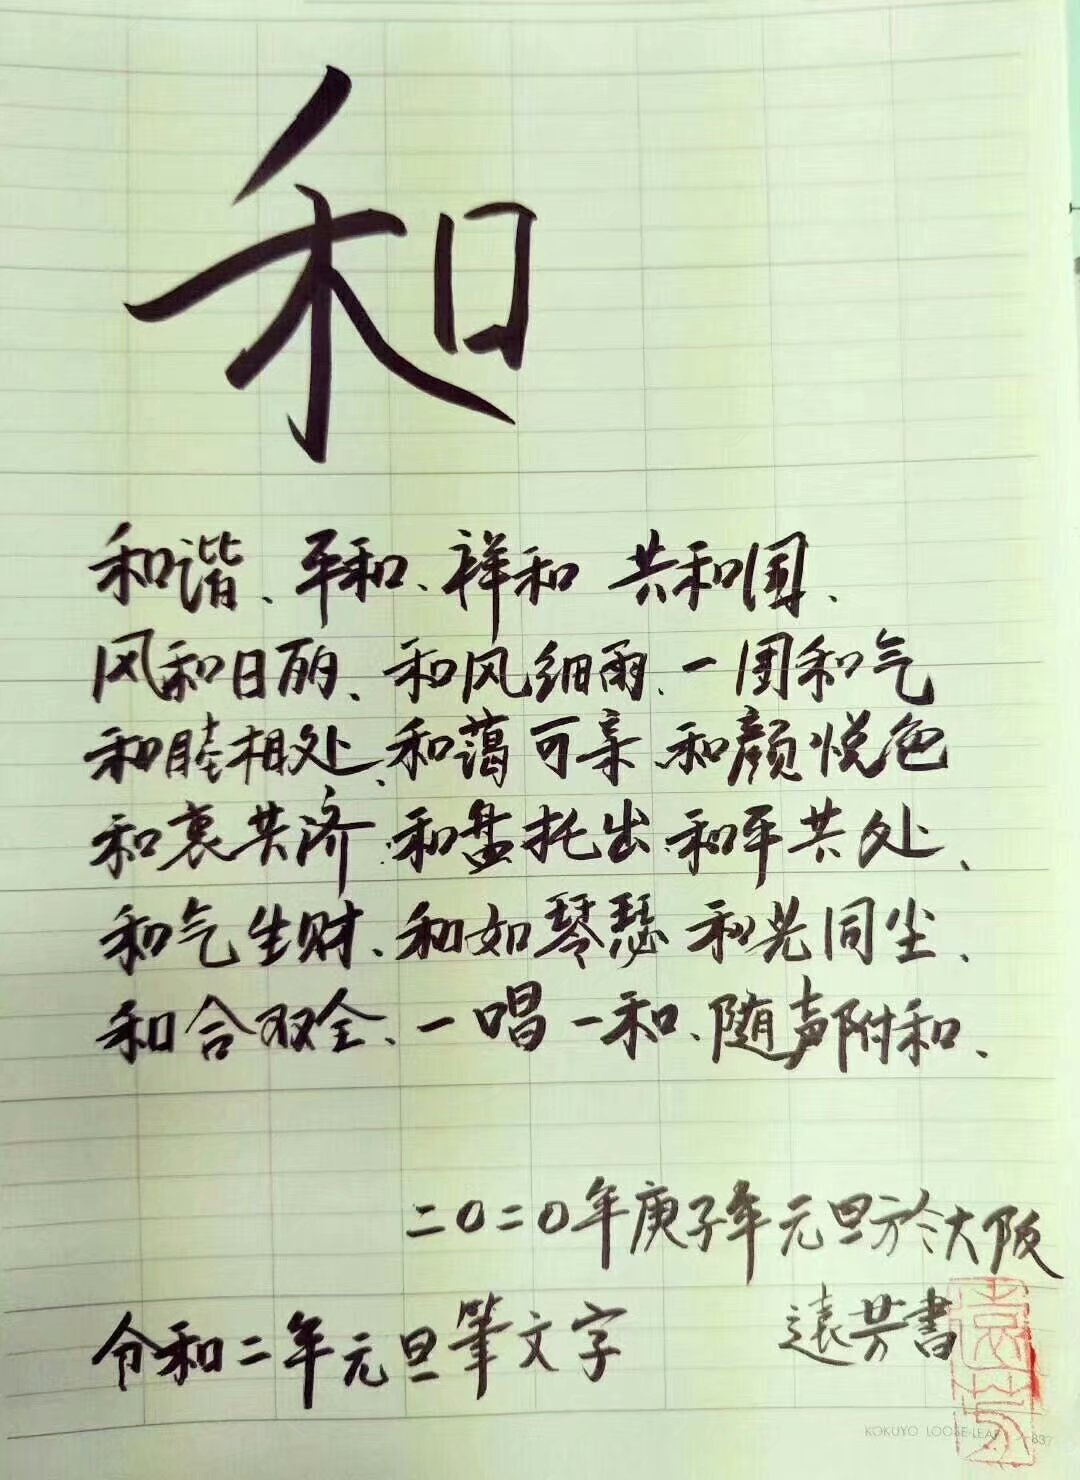 和
和谐、平和、祥和 共和国、
风和日丽、和风细雨、一团和气
和睦相处、和蔼可亲、和颜悦色
和衷共济、和盘托出、和平共处、
和气生财、和如琴瑟 和光同尘、
和合双全、一唱一和、随声附和、
二〇二〇年庚子年元旦方於大阪
令和二年元旦筆文字
遠芳書
遠芳
KOKUYO LOOSE-LEAF
837